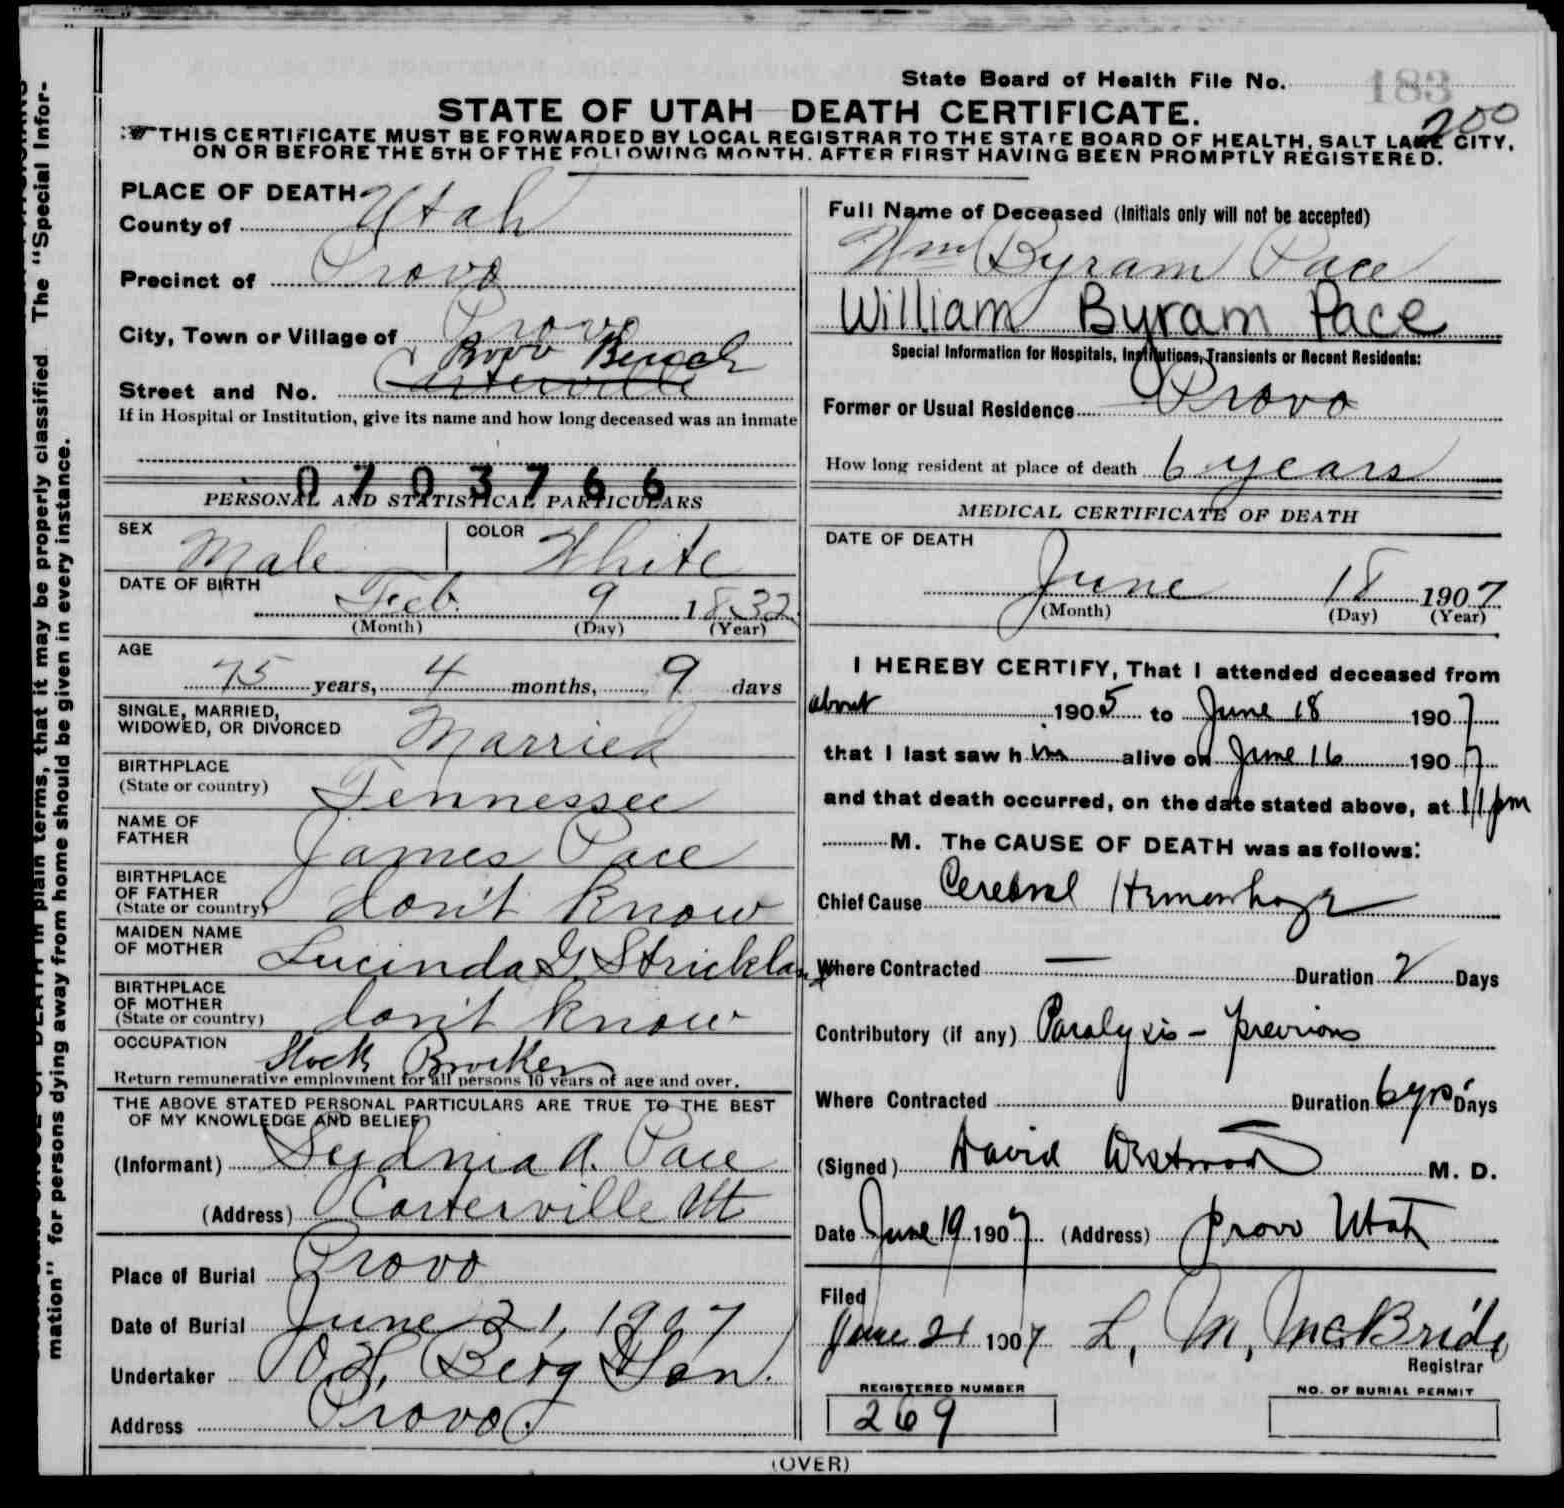 State Board of Health File No. 183
200
STATE OF UTAH—DEATH CERTIFICATE.
THIS CERTIFICATE MUST BE FORWARDED BY LOCAL REGISTRAR TO THE STATE BOARD OF HEALTH, SALT LAKE CITY,
ON OR BEFORE THE 5TH OF THE FOLLOWING MONTH. AFTER FIRST HAVING BEEN PROMPTLY REGISTERED.
PLACE OF DEATH
County of Utah
Precinct of Provo
City, Town or Village of Provo
Provo Bench
Street and No. Carterville
If in Hospital or Institution, give its name and how long deceased was an inmate
0703766
PERSONAL AND STATISTICAL PARTICULARS
SEX Male COLOR White
DATE OF BIRTH Feb. 9 1832
(Month) (Day) (Year)
AGE
75 years, 4 months, 9 days
SINGLE, MARRIED,
WIDOWED, OR DIVORCED Married
BIRTHPLACE
(State or country) Tennessee
NAME OF
FATHER James Pace
BIRTHPLACE
OF FATHER
(State or country) don't know
MAIDEN NAME
OF MOTHER Lucinda G. Strickland
BIRTHPLACE
OF MOTHER
(State or country) don't know
OCCUPATION Stock Broker
Return remunerative employment for all persons 10 years of age and over.
THE ABOVE STATED PERSONAL PARTICULARS ARE TRUE TO THE BEST
OF MY KNOWLEDGE AND BELIEF
(Informant) Sydnia A. Pace
(Address) Carterville Ut
Place of Burial Provo
Date of Burial June 21, 1907
Undertaker O. H. Berg & Son.
Address Provo.
Full Name of Deceased (Initials only will not be accepted)
Wm Byram Pace
William Byram Pace
Special Information for Hospitals, Institutions, Transients or Recent Residents:
Former or Usual Residence Provo
How long resident at place of death 6 years
MEDICAL CERTIFICATE OF DEATH
DATE OF DEATH
June 18 1907
(Month) (Day) (Year)
I HEREBY CERTIFY, That I attended deceased from
about 1905 to June 18 1907
that I last saw him alive on June 16 1907
and that death occurred, on the date stated above, at 11 pm
M. The CAUSE OF DEATH was as follows:
Chief Cause Cerebral Hemorrhage
Where Contracted — Duration 2 Days
Contributory (if any) Paralysis - previous
Where Contracted Duration 6 yrs Days
(Signed) David Westwood M. D.
Date June 19 1907 (Address) Provo Utah
Filed
June 21 1907 L. M. McBride
Registrar
REGISTERED NUMBER
269
NO. OF BURIAL PERMIT
(OVER)
CAUSE OF DEATH in plain terms, that it may be properly classified The "Special Infor-
mation" for persons dying away from home should be given in every instance.